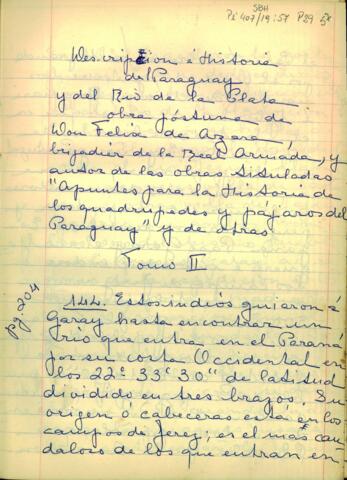 SBH
Pi 407/19:57 P29
Descripcion é Historia
del Paraguay
y del Rio de la Plata
obra póstuma de
Don Felix de Azara,
brigadier de la Real Armada, y
autor de las obras tituladas
"Apuntes para la Historia de
los quadrúpedes y pájaros del
Paraguay" y de otras
Tomo II
Pg. 204
144. Estos indios guiaron á
Garay hasta encontrar un
rio que entra en el Paraná
por su costa Occidental en
los 22° 33' 30" de latitud
dividido en tres brazos. Su
origen ó cabeceras está en los
campos de Jerez; es el mas cau-
daloso de los que entran en